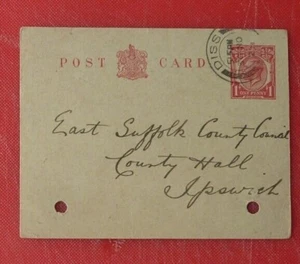 POST CARD
DISS
1 ONE PENNY 1
East Suffolk County Council
County Hall
Ipswich